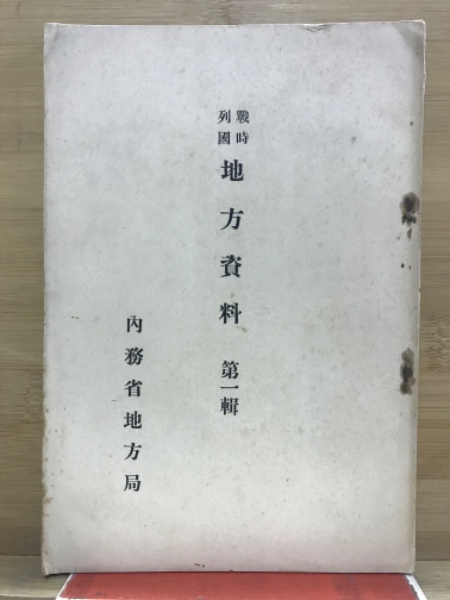 戰時
列國
地方資料 第一輯
內務省地方局